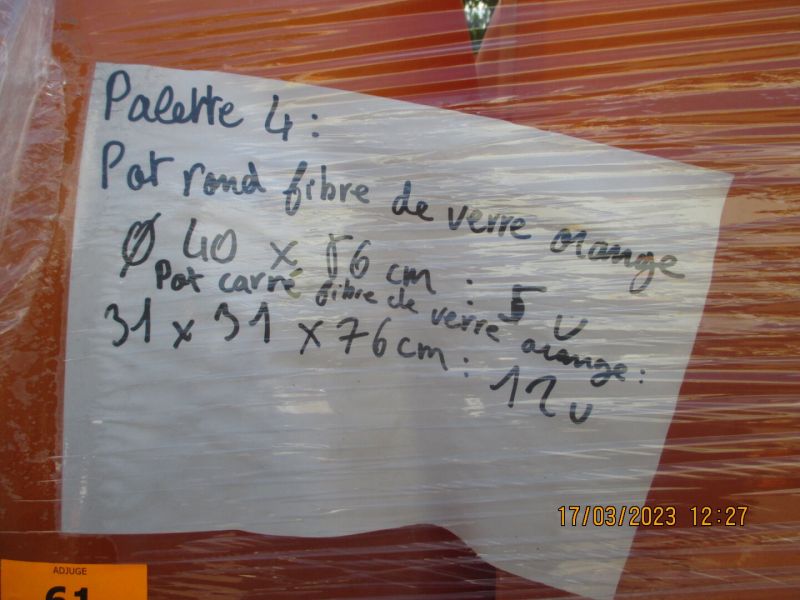 Palette 4 :
Pot rond fibre de verre orange
Ø 40 x 56 cm : 5 U
Pot carré fibre de verre orange :
31 x 31 x 76 cm : 12 U
17/03/2023 12:27
ADJUGE
61